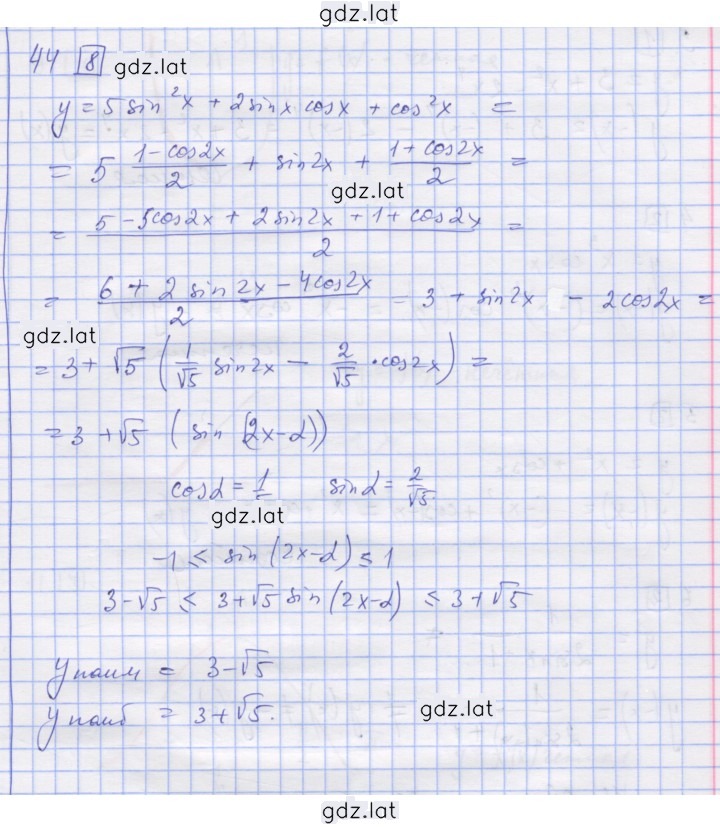 gdz.lat
44 8
gdz.lat
y = 5 sin²x + 2 sinx cosx + cos²x =
= 5 (1 - cos2x)/2 + sin2x + (1 + cos2x)/2 =
gdz.lat
= (5 - 5cos2x + 2 sin2x + 1 + cos2x)/2 =
= (6 + 2 sin 2x - 4cos2x)/2 = 3 + sin2x - 2cos2x =
gdz.lat
= 3 + √5 (1/√5 sin2x - 2/√5 · cos2x) =
= 3 + √5 (sin (2x - α))
cosα = 1/ sinα = 2/√5
gdz.lat
-1 ≤ sin (2x - α) ≤ 1
3 - √5 ≤ 3 + √5 sin (2x - α) ≤ 3 + √5
y наим = 3 - √5
y наиб = 3 + √5.
gdz.lat
gdz.lat